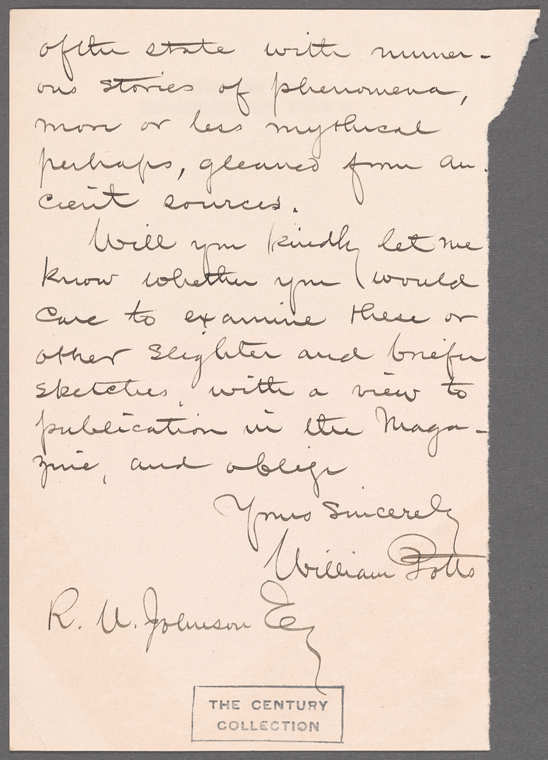 of the state with numer-
ous stories of phenomena,
more or less mythical
perhaps, gleaned from an-
cient sources.
Will you kindly let me
know whether you would
care to examine these or
other slighter and briefer
sketches, with a view to
publication in the Maga-
zine, and oblige
Yours Sincerely
William Potts
R. U. Johnson Esq
THE CENTURY
COLLECTION